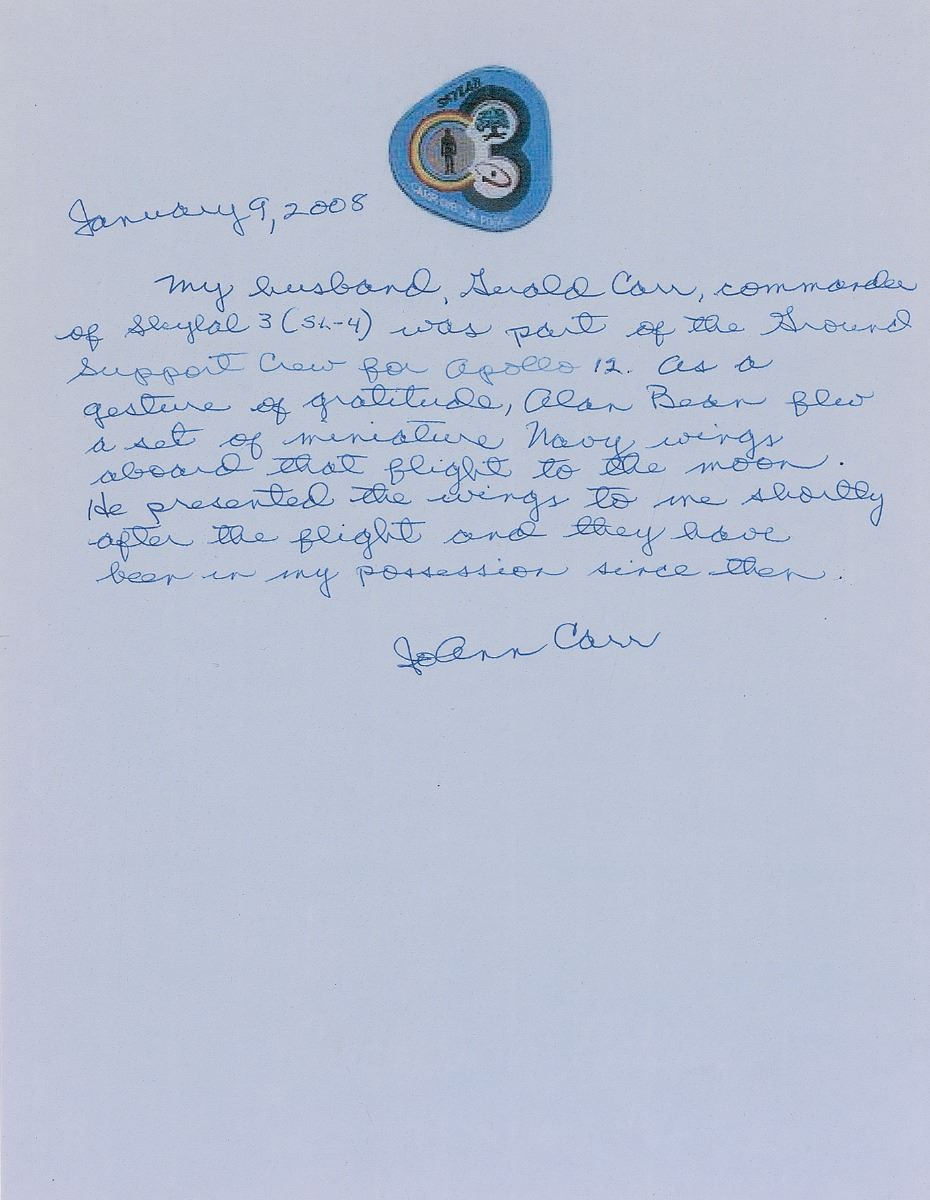 SKYLAB
CARR GIBSON POGUE
January 9, 2008
My husband, Gerald Carr, commander
of Skylab 3 (SL-4) was part of the Ground
Support Crew for Apollo 12. As a
gesture of gratitude, Alan Bean flew
a set of miniature Navy wings
aboard that flight to the moon.
He presented the wings to me shortly
after the flight and they have
been in my possession since then.
JoAnn Carr